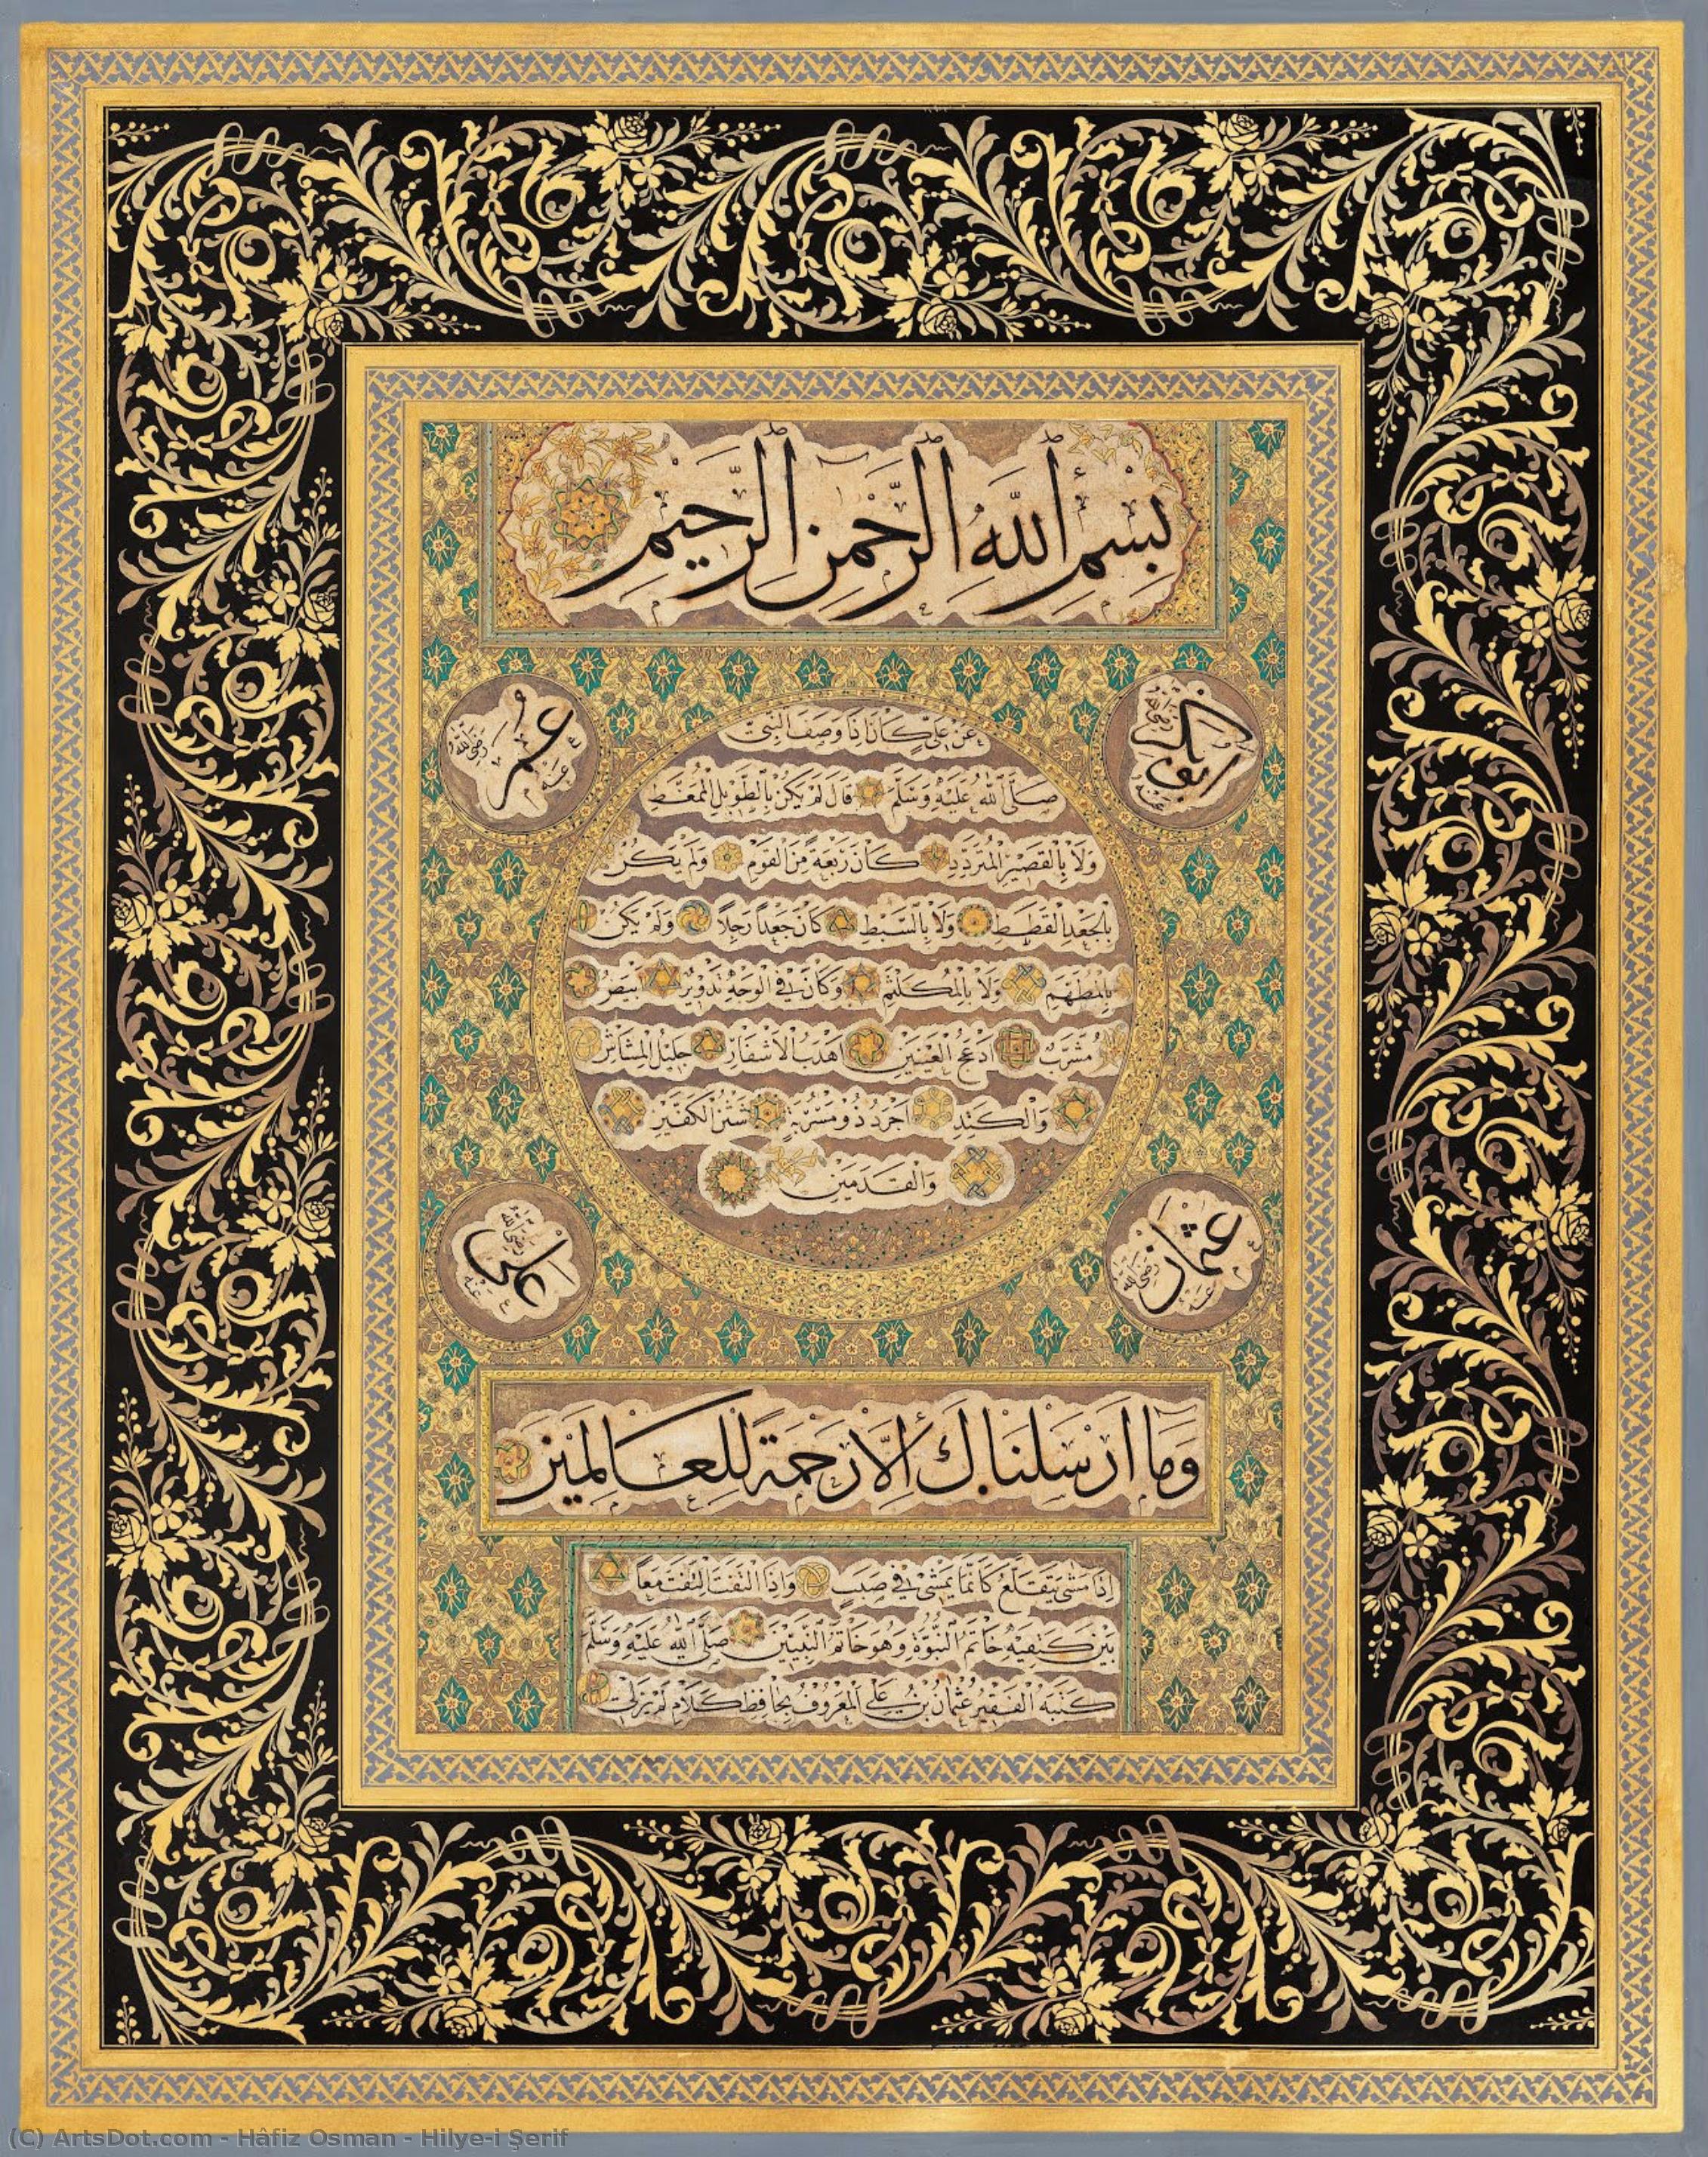 بِسْمِ اللهِ الرَّحْمٰنِ الرَّحِيمِ
ابو بكر رضى الله عنه
عمر رضى الله عنه
عَنْ عَلِيٍّ كَانَ اِذَا وَصَفَ النَّبِيَّ
صَلَّى اللهُ عَلَيْهِ وَسَلَّمَ قَالَ لَمْ يَكُنْ بِالطَّوِيلِ الْمُمَغَّطِ
وَلَا بِالْقَصِيرِ الْمُتَرَدِّدِ كَانَ رَبْعَةً مِنَ الْقَوْمِ وَلَمْ يَكُنْ
بِالْجَعْدِ الْقَطَطِ وَلَا بِالسَّبْطِ كَانَ جَعْدًا رَجِلًا وَلَمْ يَكُنْ
بِالْمُطَهَّمِ وَلَا بِالْمُكَلْثَمِ وَكَانَ فِى الْوَجْهِ تَدْوِيرٌ اَبْيَضُ
مُشْرَبٌ اَدْعَجُ الْعَيْنَيْنِ اَهْدَبُ الْاَشْفَارِ جَلِيلُ الْمُشَاشِ
وَالْكَتَدِ اَجْرَدُ ذُو مَسْرُبَةٍ شَثْنُ الْكَفَّيْنِ
وَالْقَدَمَيْنِ
عثمان رضى الله عنه
على رضى الله عنه
وَمَا اَرْسَلْنَاكَ اِلَّا رَحْمَةً لِلْعَالَمِينَ
اِذَا مَشٰى يَتَقَلَّعُ كَاَنَّمَا يَمْشِى فِى صَبَبٍ وَاِذَا الْتَفَتَ الْتَفَتَ مَعًا
بَيْنَ كَتِفَيْهِ خَاتَمُ النُّبُوَّةِ وَهُوَ خَاتَمُ النَّبِيِّينَ صَلَّى اللهُ عَلَيْهِ وَسَلَّمَ
كَتَبَهُ الْفَقِيرُ عُثْمَانُ بْنُ عَلِى الْمَعْرُوفُ بِحَافِظِ كَلَامِ لَمْ يَزَلِى
(C) ArtsDot.com - Hâfiz Osman - Hilye-i Şerif